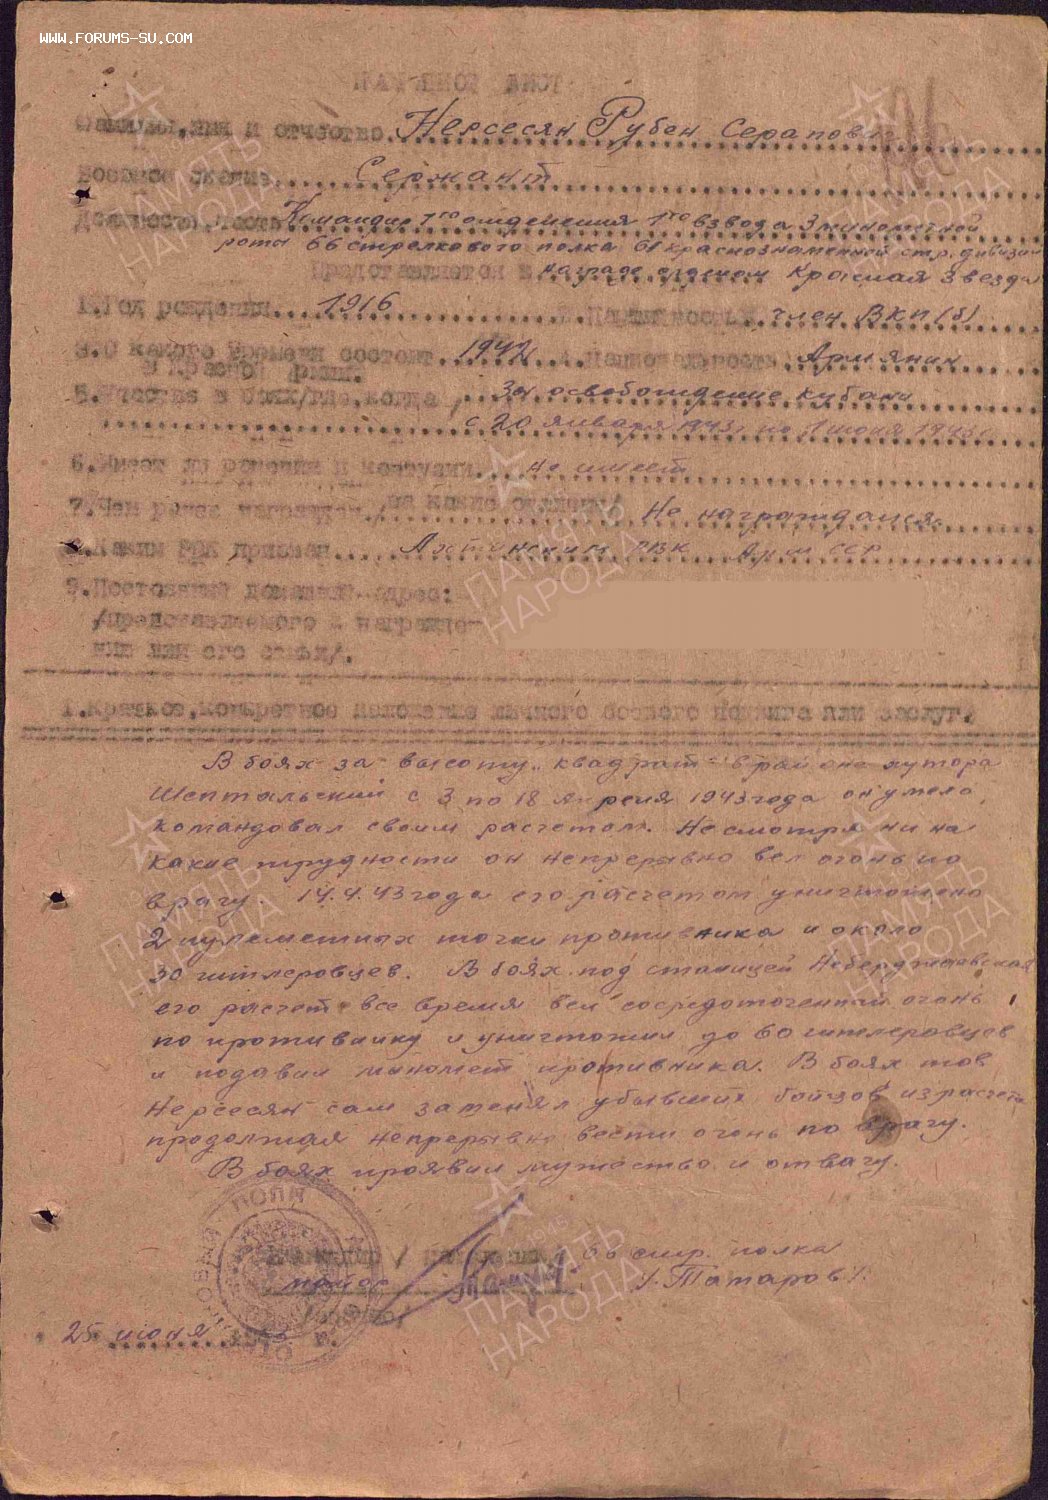 WWW.FORUMS-SU.COM
НАГРАДНОЙ ЛИСТ
Фамилия, имя и отчество Нерсесян Рубен Серапович
Военное звание Сержант
Должность, часть Командир 1го отделения 1го взвода 3 минометной
роты 66 стрелкового полка 61 краснознаменной стр. дивизии
Представляется к награде орденом Красная Звезда
1. Год рождения 1916 2. Партийность член ВКП(б)
3. С какого времени состоит 1942 4. Национальность Армянин
в Красной Армии.
5. Участие в боях/где, когда/ За освобождение Кубани
с 20 января 1943г по 1 июня 1943г
6. Имеет ли ранения и контузии не имеет
7. Чем ранее награжден /за какие отличия/ Не награждался
8. Каким РВК призван Ахтинским РВК Арм ССР
9. Постоянный домашний адрес:
/представляемого к награде
или его семьи/.
1. Краткое, конкретное изложение личного боевого подвига или заслуг.
В боях за высоту "квадрат" в районе хутора
Шептальский с 3 по 18 апреля 1943 года он умело
командовал своим расчетом. Несмотря ни на
какие трудности он непрерывно вел огонь по
врагу. 14.4.43 года его расчетом уничтожено
2 пулеметных точки противника и около
30 гитлеровцев. В боях под станицей Неберджаевская
его расчет все время вел сосредоточенный огонь
по противнику и уничтожил до 60 гитлеровцев
и подавил миномет противника. В боях тов
Нерсесян сам заменял убывших бойцов из расчета
продолжая непрерывно вести огонь по врагу.
В боях проявил мужество и отвагу.
Командир 66 стр. полка
майор /Татаров/
25 июня
ПАМЯТЬ
НАРОДА